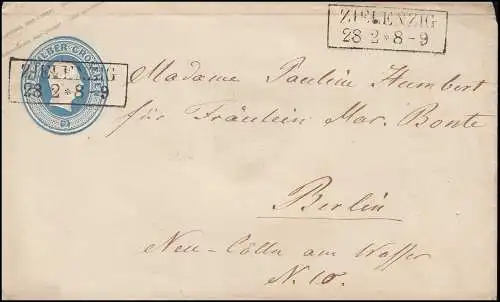 ZIELENZIG
28 2 * 8-9
SILBER GROSCHEN
ZIELENZIG
28 2 * 8-9
Madame Paulin Humbert
für Fräulein Mar. Bonte
Berlin
Neu-Cölln am Wasser
N. 10.